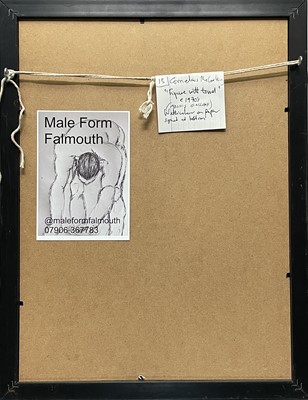 Male Form
Falmouth
@maleformfalmouth
07906 367783
Cornelius McCarthy
"Figure with towel"
Watercolour on paper
signed at bottom